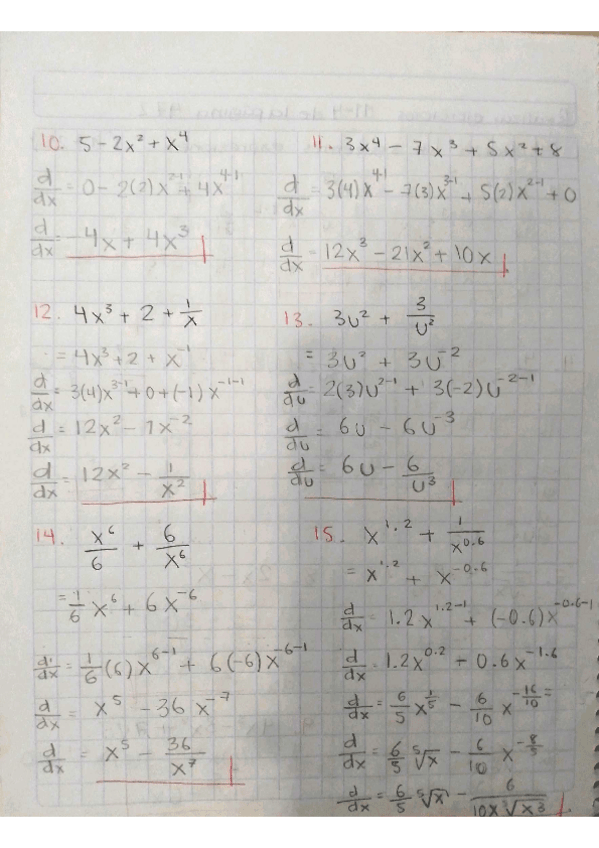 10. 5 - 2x² + x⁴
d/dx = 0 - 2(2)x²⁻¹ + 4x⁴⁻¹
d/dx = -4x + 4x³
11. 3x⁴ - 7x³ + 5x² + 8
d/dx = 3(4)x⁴⁻¹ - 7(3)x³⁻¹ + 5(2)x²⁻¹ + 0
d/dx = 12x³ - 21x² + 10x
12. 4x³ + 2 + 1/x
= 4x³ + 2 + x⁻¹
d/dx = 3(4)x³⁻¹ + 0 + (-1)x⁻¹⁻¹
d/dx = 12x² - 1x⁻²
d/dx = 12x² - 1/x²
13. 3u² + 3/u²
= 3u² + 3u⁻²
d/du = 2(3)u²⁻¹ + 3(-2)u⁻²⁻¹
d/du = 6u - 6u⁻³
d/du = 6u - 6/u³
14. x⁶/6 + 6/x⁶
= 1/6 x⁶ + 6x⁻⁶
d/dx = 1/6 (6)x⁶⁻¹ + 6(-6)x⁻⁶⁻¹
d/dx = x⁵ - 36x⁻⁷
d/dx = x⁵ - 36/x⁷
15. x^1.2 + 1/x^0.6
= x^1.2 + x^-0.6
d/dx = 1.2x^1.2-1 + (-0.6)x^-0.6-1
d/dx = 1.2x^0.2 + 0.6x^-1.6
d/dx = 6/5 x^1/5 - 6/10 x^-16/10 =
d/dx = 6/5 ⁵√x - 6/10 x^-8/5
d/dx = 6/5 ⁵√x - 6/10x ⁵√x³